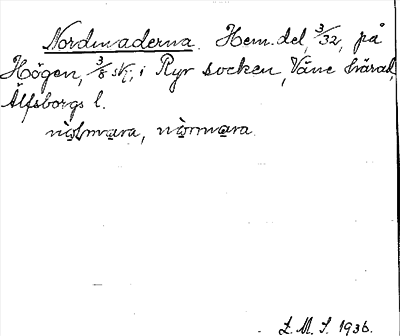 Nordmaderna. Hem.del, 3/32, på
Högen, 3/8 sk., i Ryr socken, Väne härad,
Älfsborgs l.
Z. M. S. 1936.